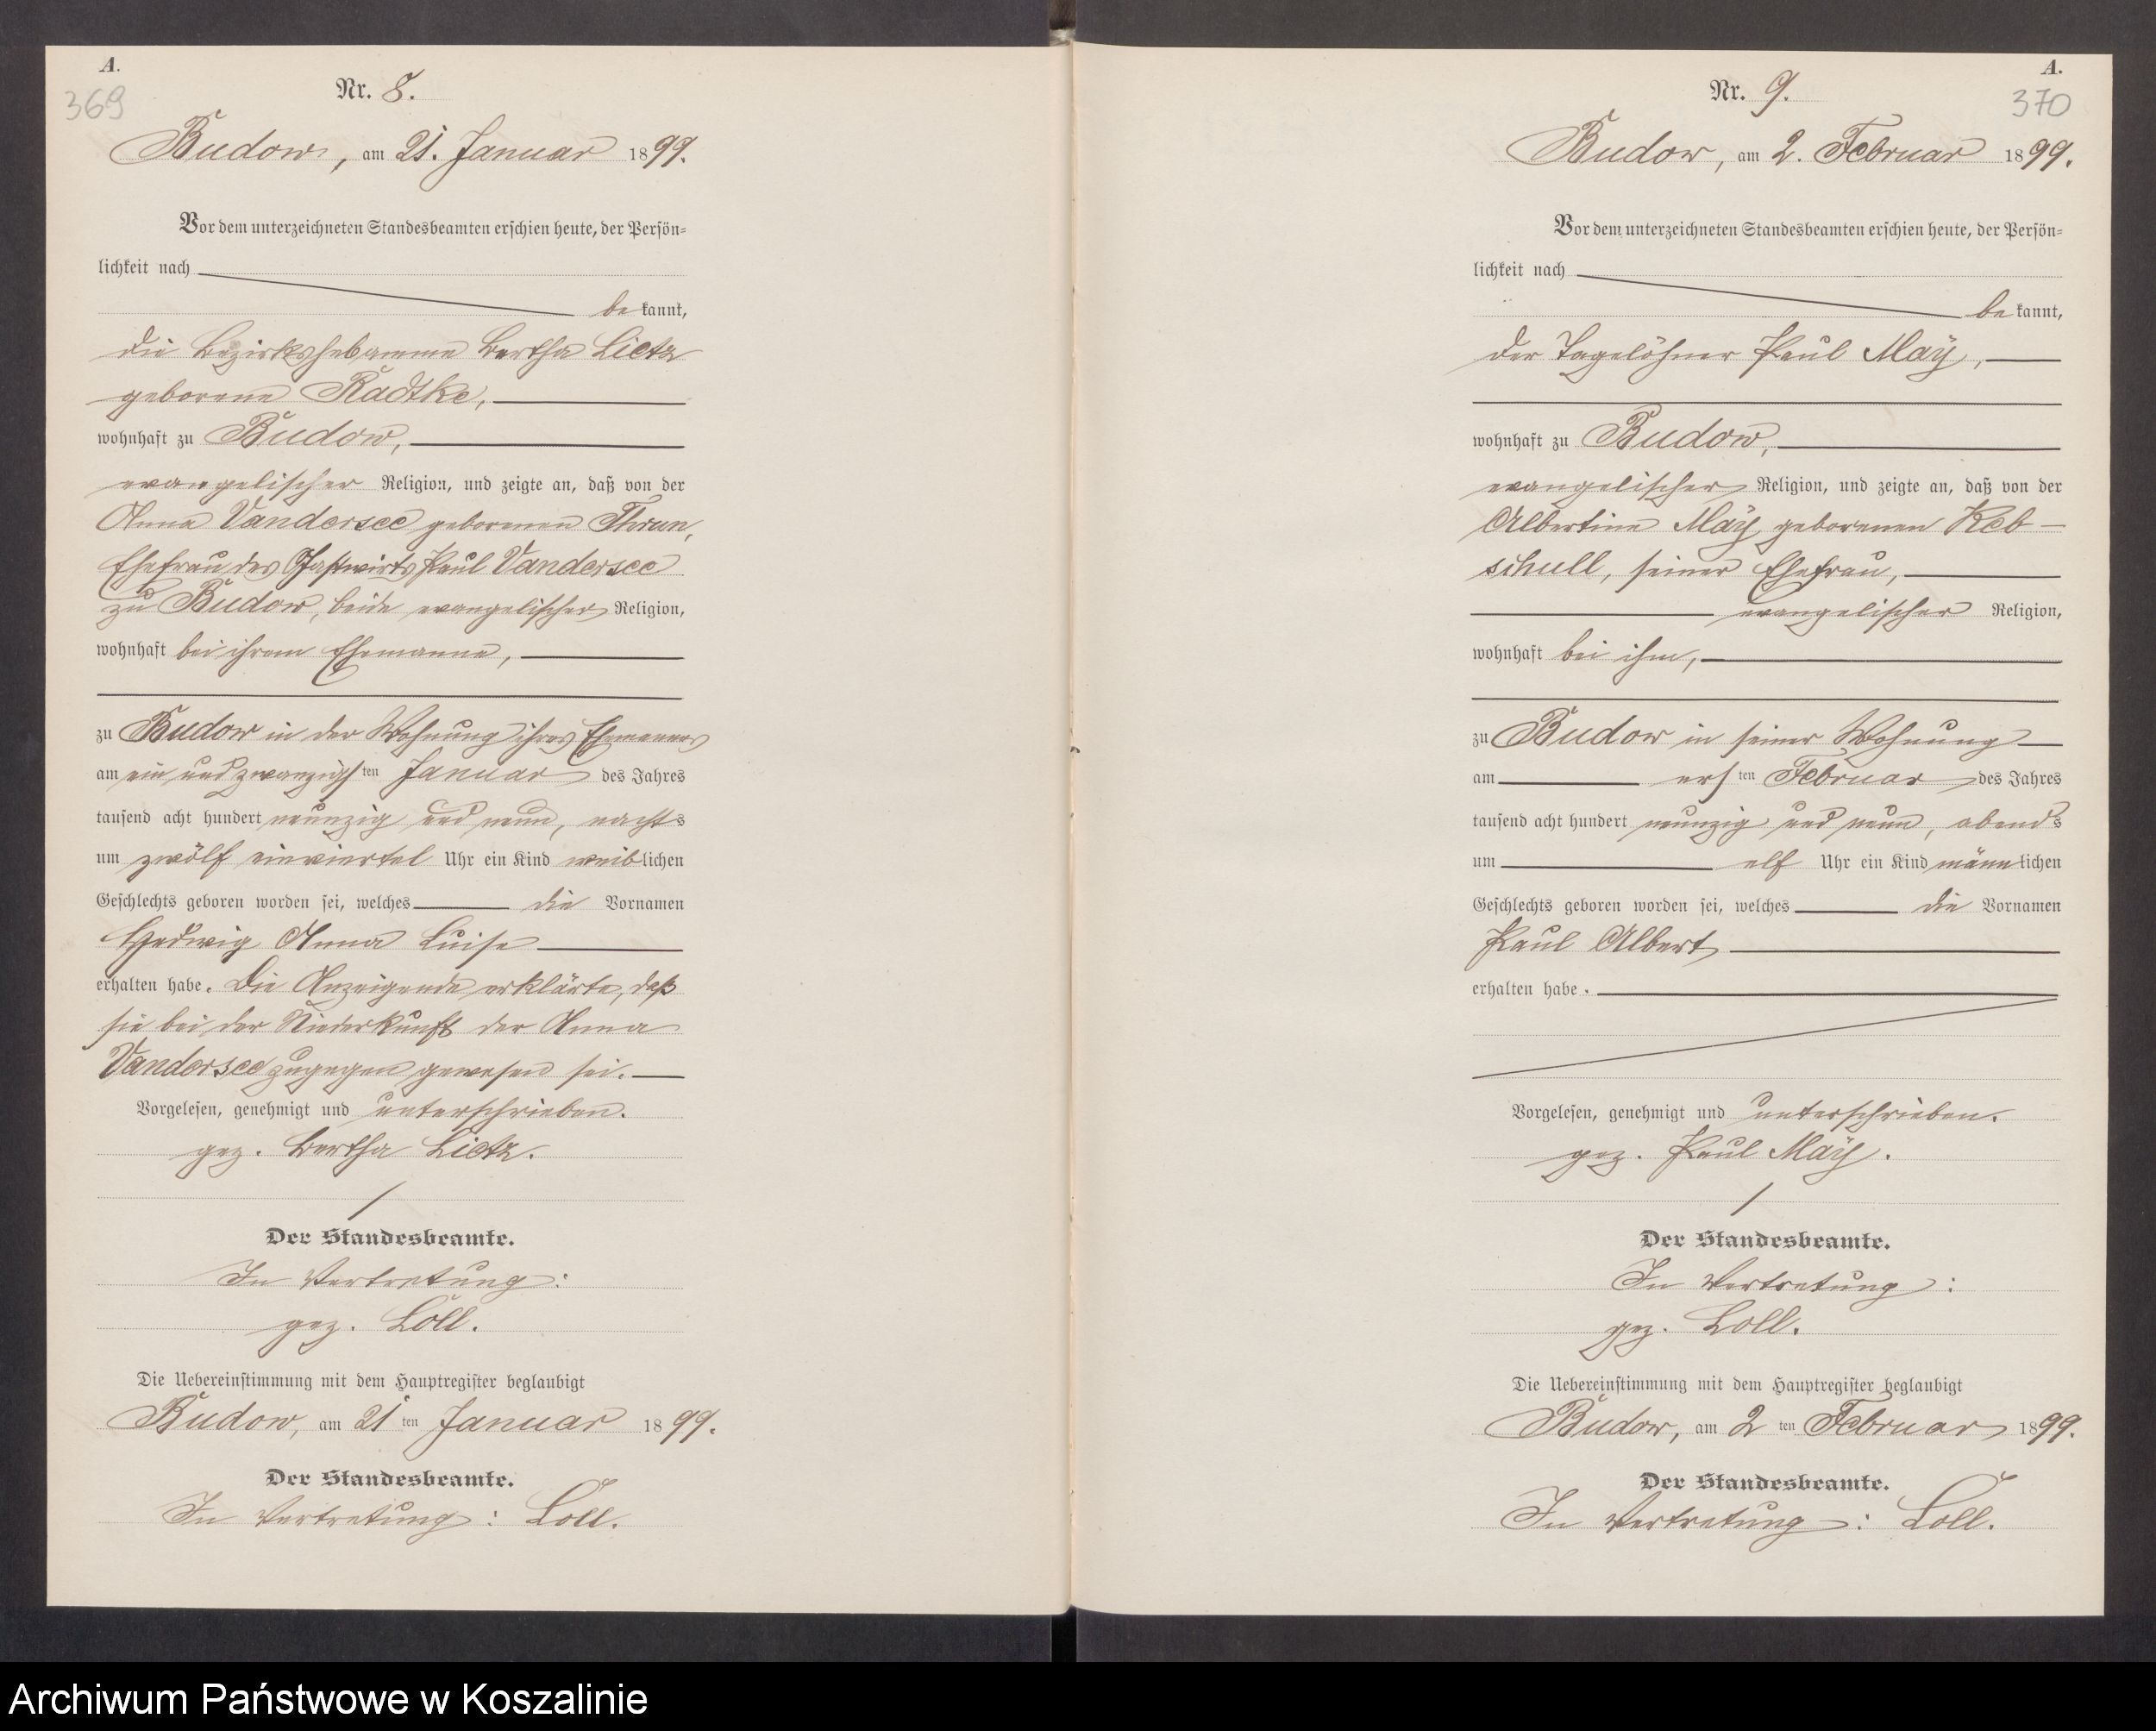 A.
369
Nr. 8.
Budow, am 21. Januar 1899.
Vor dem unterzeichneten Standesbeamten erschien heute, der Persön-
lichkeit nach
bekannt,
die Bezirkshebamme Bertha Lietz
geborene Radtke,
wohnhaft zu Budow,
evangelischer Religion, und zeigte an, daß von der
Anna Vandersee geborenen Thrun,
Ehefrau des Gastwirts Paul Vandersee
zu Budow, beide evangelischer Religion,
wohnhaft bei ihrem Ehemanne,
zu Budow in der Wohnung ihres Ehemannes
am ein und zwanzigsten Januar des Jahres
tausend acht hundert neunzig und neun, nachts
um zwölf einviertel Uhr ein Kind weiblichen
Geschlechts geboren worden sei, welches die Vornamen
Hedwig Anna Luise
erhalten habe. Die Anzeigende erklärte, daß
sie bei der Niederkunft der Anna
Vandersee zugegen gewesen sei.
Vorgelesen, genehmigt und unterschrieben.
gez. Bertha Lietz.
Der Standesbeamte.
In Vertretung:
gez. Loll.
Die Uebereinstimmung mit dem Hauptregister beglaubigt
Budow, am 21ten Januar 1899.
Der Standesbeamte.
In Vertretung: Loll.
A.
370
Nr. 9.
Budow, am 2. Februar 1899.
Vor dem unterzeichneten Standesbeamten erschien heute, der Persön-
lichkeit nach
bekannt,
der Tagelöhner Paul May,
wohnhaft zu Budow,
evangelischer Religion, und zeigte an, daß von der
Albertine May geborenen Keb-
schull, seiner Ehefrau,
evangelischer Religion,
wohnhaft bei ihm,
zu Budow in seiner Wohnung
am ersten Februar des Jahres
tausend acht hundert neunzig und neun, abends
um elf Uhr ein Kind männlichen
Geschlechts geboren worden sei, welches die Vornamen
Paul Albert
erhalten habe.
Vorgelesen, genehmigt und unterschrieben.
gez. Paul May.
Der Standesbeamte.
In Vertretung:
gez. Loll.
Die Uebereinstimmung mit dem Hauptregister beglaubigt
Budow, am 2ten Februar 1899.
Der Standesbeamte.
In Vertretung: Loll.
Archiwum Państwowe w Koszalinie